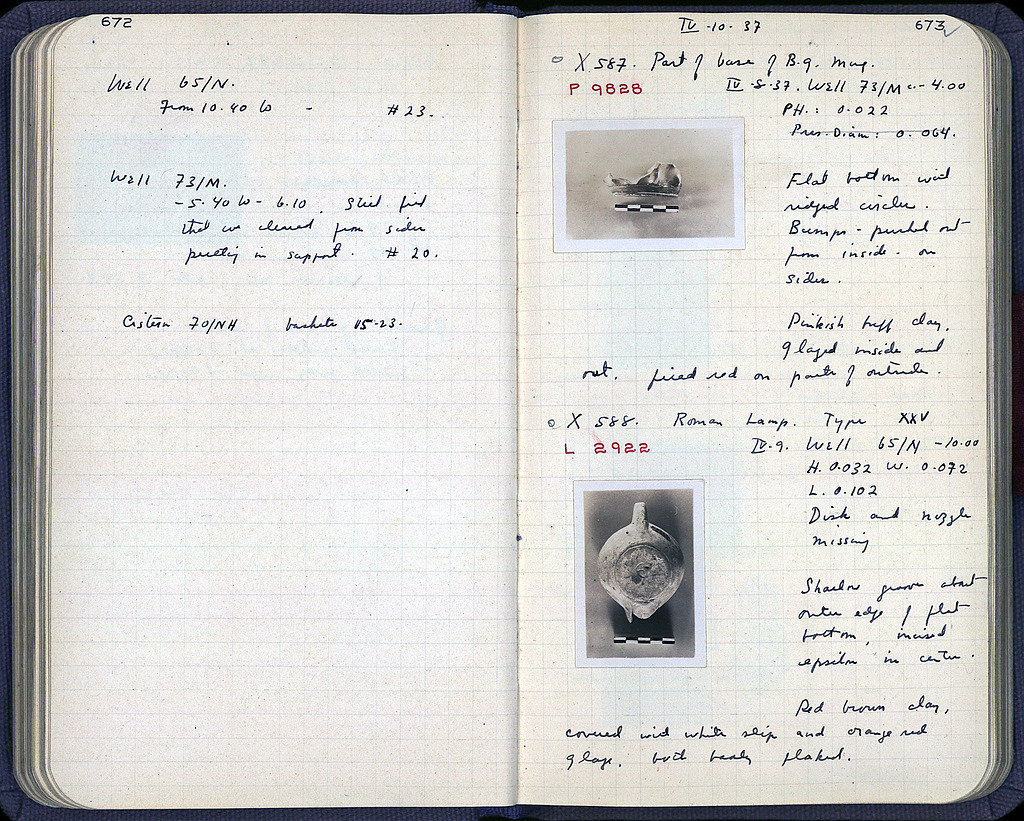 672
Well 65/N.
From 10.40 to - #23.
Well 73/M.
-5.40 to - 6.10.
that we cleared from sides
putting in support. #20.
Cistern 70/NH baskets 15-23.
IV-10-37 673
X 587. Part of base of B.g. mug.
P 9828 IV-8-37. Well 73/M -4.00
PH.: 0.022
Pres. Diam: 0.064.
Flat bottom with
ridged circles.
Bumps - pushed out
from inside - on
sides.
Pinkish buff clay,
glazed inside and
out. fired red on parts of outside.
X 588. Roman Lamp. Type XXV
L 2922 IV-9. Well 65/N -10.00
H. 0.032 W. 0.072
L. 0.102
Disk and nozzle
missing
Shallow groove about
outer edge of flat
bottom, incised
epsilon in center.
Red brown clay,
covered with white slip and orange red
glaze, both badly flaked.